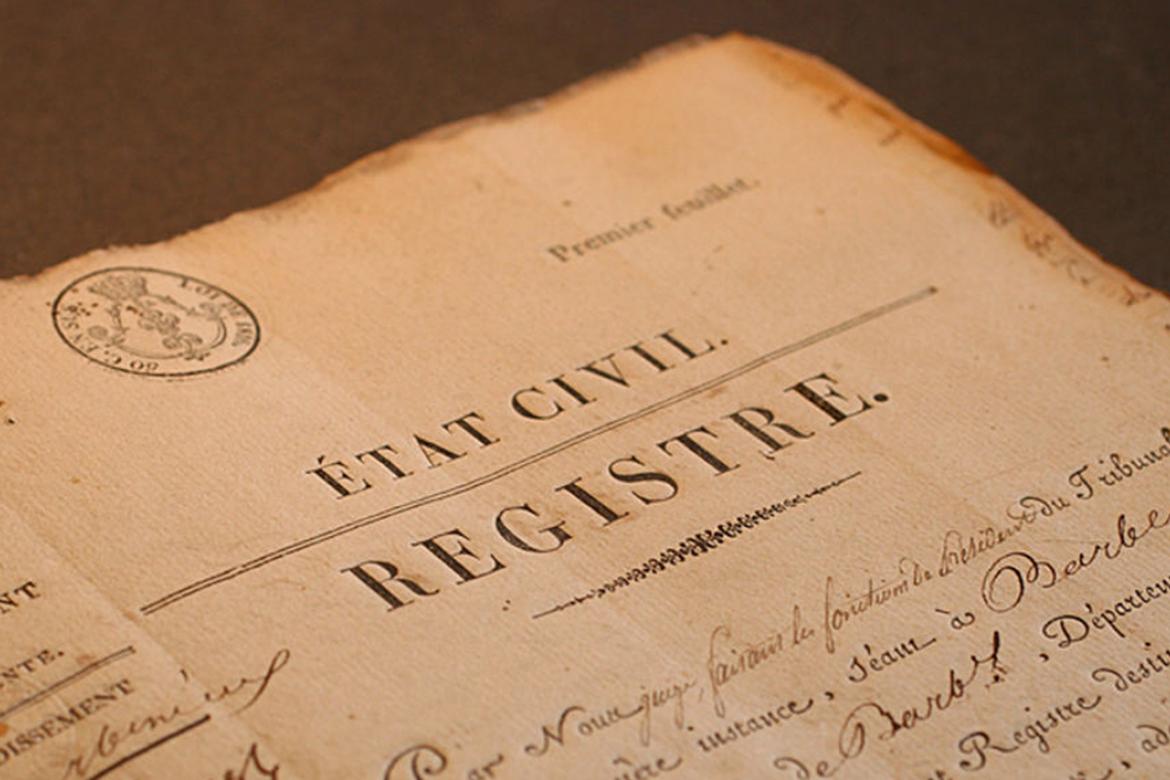 Premier feuillet.
ÉTAT CIVIL.
REGISTRE.
NT
NTE.
DISSEMENT
Par Nous juge, faisant les fonctions de Président du Tribunal
instance, séant à Barbe
de Barbez, Départem
Registre desti